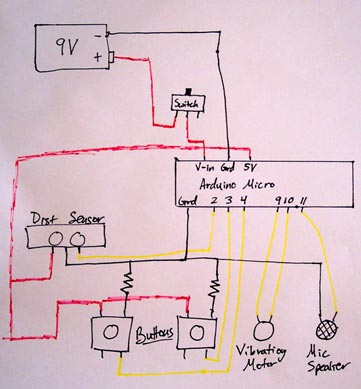 9V
-
+
Switch
V-in Gnd 5V
Arduino Micro
Gnd 2 3 4 9 10 11
Dist Sensor
Buttons
Vibration
Motor
Mic
Speaker